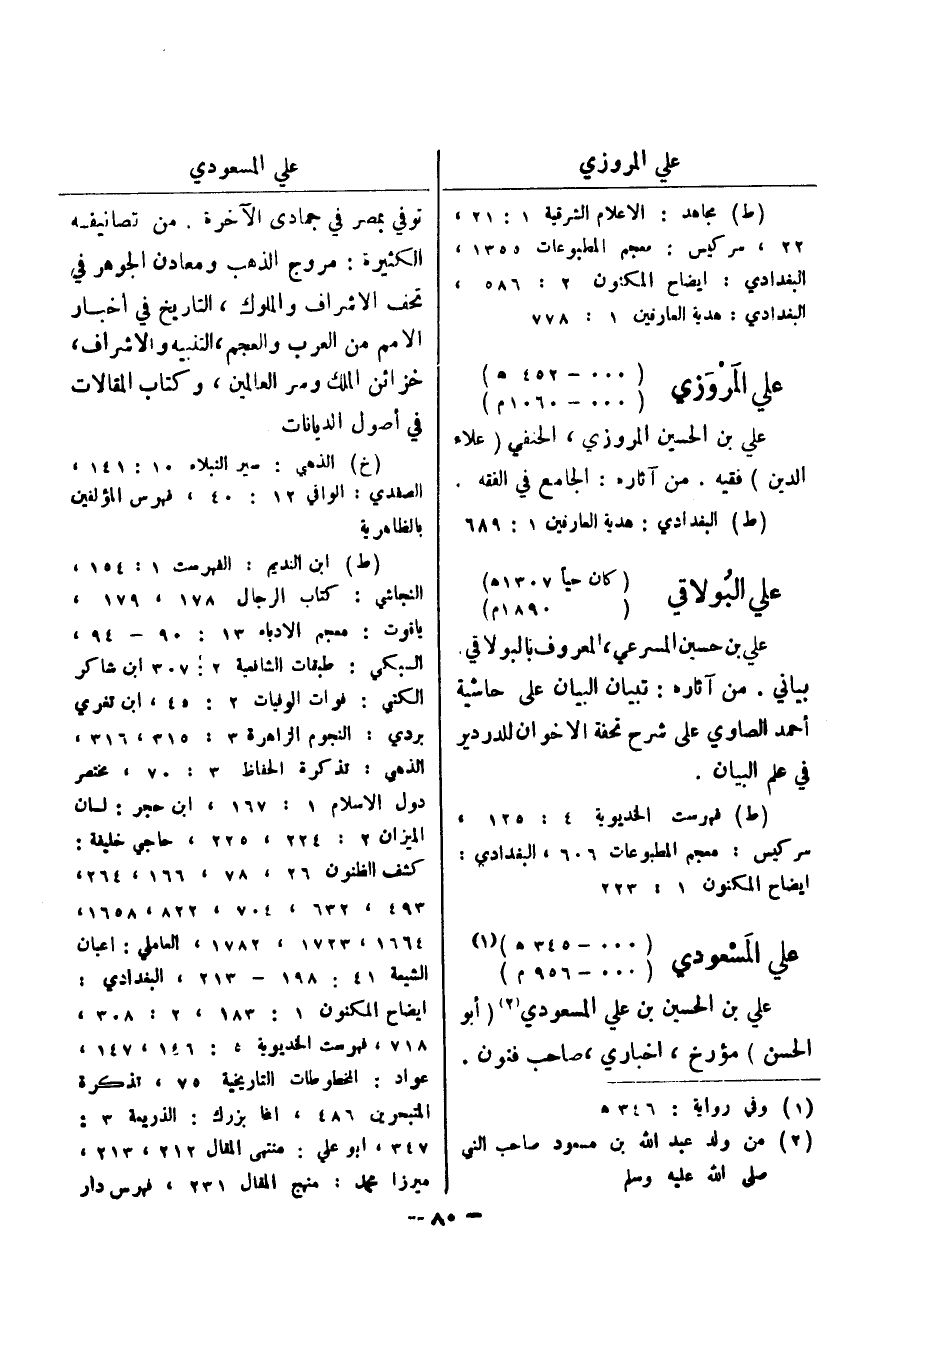 علي المروزي
(ط) مجاهد : الاعلام الشرقية ١ : ٢١ ،
٢٢ ، سركيس : معجم المطبوعات ١٣٥٥ ،
البغدادي : ايضاح المكنون ٢ : ٥٨٦ ،
البغدادي : هدية العارفين ١ : ٧٧٨
علي المَرْوَزي
( ٠٠٠ – ٤٥٢ ه )
( ٠٠٠ – ١٠٦٠م )
علي بن الحسين المروزي ، الحنفي ( علاء
الدين ) فقيه . من آثاره : الجامع في الفقه .
(ط) البغدادي : هدية العارفين ١ : ٦٨٩
علي البُولاقي
( كان حياً ١٣٠٧ه)
( ١٨٩٠م)
علي بن حسين المسرعي، المعروف بالبولاقي.
بياني . من آثاره : تبيان البيان على حاشية
أحمد الصاوي على شرح تحفة الاخوان للدردير
في علم البيان .
(ط) فهرست الخديوية ٤ : ١٢٥ ،
سركيس : معجم المطبوعات ٦٠٦ ، البغدادي :
ايضاح المكنون ١ : ٢٢٣
علي المَسْعودي
( ٠٠٠ – ٣٤٥ ه )(١)
( ٠٠٠ – ٩٥٦ م )
علي بن الحسين بن علي المسعودي(٢) ( أبو
الحسن ) مؤرخ ، اخباري ، صاحب فنون .
(١) وفي رواية : ٣٤٦ ه
(٢) من ولد عبد الله بن مسعود صاحب النبي
صلى الله عليه وسلم
علي المسعودي
توفي بمصر في جمادى الآخرة . من تصانيفه
الكثيرة : مروج الذهب ومعادن الجوهر في
تحف الاشراف والملوك ، التاريخ في أخبار
الامم من العرب والعجم ،التنبيه والاشراف،
خزائن الملك وسر العالمين ، وكتاب المقالات
في أصول الديانات
(خ) الذهبي : سير النبلاء ١٠ : ١٤١ ،
الصفدي : الوافي ١٢ : ٤٠ ، فهرس المؤلفين
بالظاهرية
(ط) ابن النديم : الفهرست ١ : ١٥٤ ،
النجاشي : كتاب الرجال ١٧٨ ، ١٧٩ ،
ياقوت : معجم الادباء ١٣ : ٩٠ – ٩٤ ،
السبكي : طبقات الشافعية ٢ : ٣٠٧ ابن شاكر
الكتبي : فوات الوفيات ٢ : ٤٥ ، ابن تغري
بردي : النجوم الزاهرة ٣ : ٣١٥ ، ٣١٦ ،
الذهبي : تذكرة الحفاظ ٣ : ٧٠ ، مختصر
دول الاسلام ١ : ١٦٧ ، ابن حجر : لسان
الميزان ٢ : ٢٢٤ ، ٢٢٥ ، حاجي خليفة :
كشف الظنون ٢٦ ، ٧٨ ، ١٦٦ ، ٢٦٤،
٤٩٣ ، ٦٣٢ ، ٧٠٤ ، ٨٢٢ ، ١٦٥٨،
١٦٦٤ ، ١٧٢٣ ، ١٧٨٢ ، العاملي : اعيان
الشيعة ٤١ : ١٩٨ – ٢١٣ ، البغدادي :
ايضاح المكنون ١ : ١٨٣ ، ٢ : ٣٠٨ ،
٧١٨ ، فهرست الخديوية ٥ : ١٤٦ ، ١٤٧ ،
عواد : المخطوطات التاريخية ٧٥ ، تذكرة
المتبحرين ٤٨٦ ، اغا بزرك : الذريعة ٣ :
٣٤٧ ، ابو علي : منتهى المقال ٢١٢ ، ٢١٣ ،
ميرزا محمد : منهج المقال ٢٣١ ، فهرس دار
– ٨٠ –